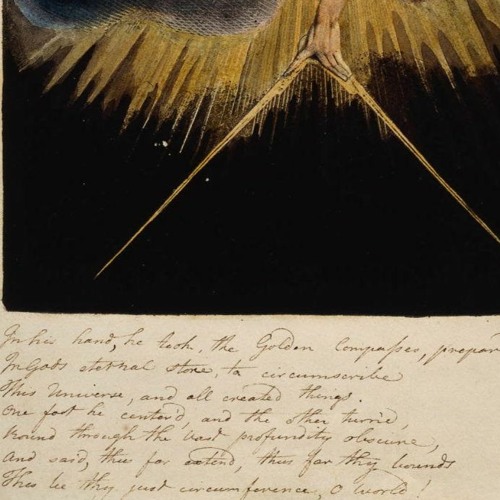 In his hand, he took, the Golden Compasses, prepar
In Gods eternal store, to circumscribe
This Universe, and all created things.
One foot he center'd, and the other turn'd,
Round through the vast profundity obscure,
And said, thus far extend, thus far thy bounds
This be thy just circumference, O World!